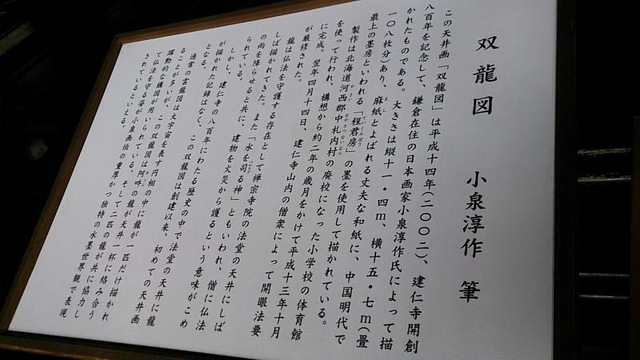 双龍図　　小泉淳作　筆
この天井画「双龍図」は平成十四年（二〇〇二）、建仁寺開創
八百年を記念して、鎌倉在住の日本画家小泉淳作氏によって描
かれたものである。大きさは縦十一・四ｍ、横十五・七ｍ（畳
一〇八枚分）あり、麻紙とよばれる丈夫な和紙に、中国明代で
最上の墨房といわれる「程君房」の墨を使用して描かれている。
製作は北海道河西郡中札内村の廃校になった小学校の体育館
を使って行われ、構想から約二年の歳月をかけて平成十三年十月
に完成。翌年四月十四日、建仁寺山内の僧衆によって開眼法要
が厳修された。
龍は仏法を守護する存在として禅宗寺院の法堂の天井にしば
しば描かれてきた。また「水を司る神」ともいわれ、僧に仏法
の雨を降らせると共に、建物を火災から護るという意味がこめ
られている。
しかし、建仁寺の八百年にわたる歴史の中で法堂の天井に龍
が描かれた記録はなく、この双龍図は創建以来、初めての天井画
となる。
通常の雲龍図は大宇宙を表す円相の中に龍が一匹だけ描かれ
ることが多いが、この双龍図は阿吽の龍が天井一杯に絡み合う
躍動的な構図が用いられている。そして二匹の龍が共に協力し
て仏法を守る姿が小泉画伯の重厚かつ独特の水墨世界観で表現
されているといえる。